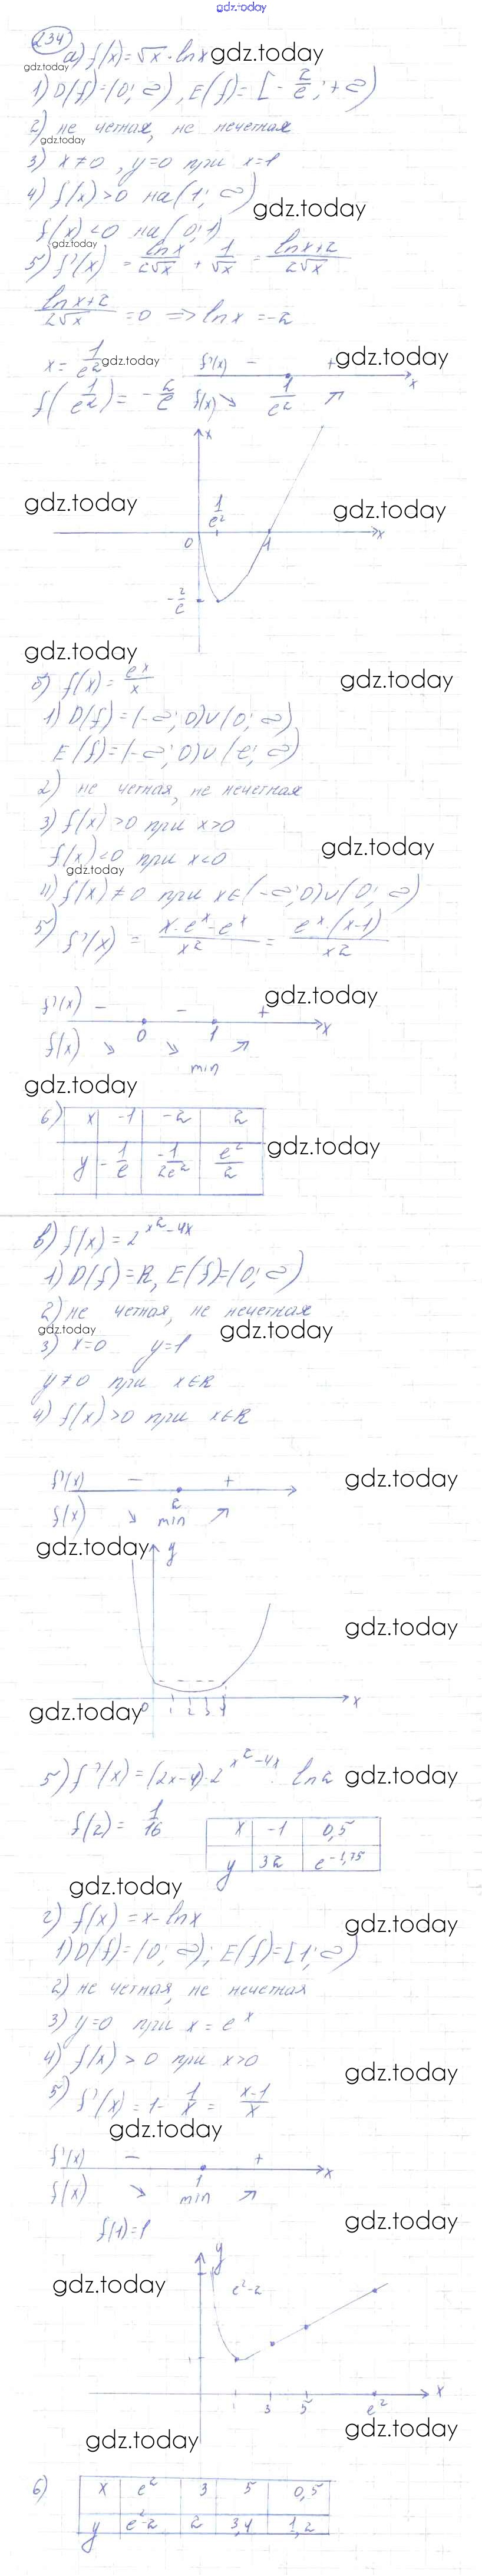 gdz.today
234
а) f(x)=√x · lnx gdz.today
gdz.today
1) D(f)=(0; ∞), E(f)=[-2/e; +∞)
2) не четная, не нечетная
gdz.today
3) x≠0, y=0 при x=1
4) f(x)>0 на (1; ∞)
gdz.today
f(x)<0 на (0; 1)
gdz.today
5) f'(x) = lnx/2√x + 1/√x = lnx+2/2√x
lnx+2/2√x = 0 => lnx = -2
x = 1/e² gdz.today f'(x) - + gdz.today
f(1/e²) = -2/e f(x) ↘ 1/e² ↗ x
x
gdz.today 1/e² gdz.today
0 1 x
-2/e
gdz.today
б) f(x)= eˣ/x gdz.today
1) D(f)=(-∞; 0)∪(0; ∞)
E(f)=(-∞; 0)∪(e; ∞)
2) не четная, не нечетная
3) f(x)>0 при x>0
gdz.today
f(x)<0 при x<0
gdz.today
4) f(x)≠0 при x∈(-∞; 0)∪(0; ∞)
5) f'(x) = x·eˣ-eˣ/x² = eˣ·(x-1)/x²
gdz.today
f'(x) - - +
f(x) ↘ 0 ↘ 1 ↗ x
min
gdz.today
6) x -1 -2 2
gdz.today
y -1/e -1/2e² e²/2
в) f(x)=2^x²-4x
1) D(f)=R, E(f)=(0; ∞)
2) не четная, не нечетная
gdz.today gdz.today
3) x=0 y=1
y≠0 при x∈R
4) f(x)>0 при x∈R
f'(x) - + gdz.today
f(x) ↘ 2 min ↗
gdz.today y
gdz.today
gdz.today 0 1 2 3 4 x
5) f'(x)=(2x-4)·2^x²-4x · ln2 gdz.today
f(2)= 1/16
x -1 0,5
y 32 e^-1,75
gdz.today
г) f(x)=x-lnx gdz.today
1) D(f)=(0; ∞); E(f)=[1; ∞)
2) не четная, не нечетная
3) y=0 при x=eˣ
4) f(x)>0 при x>0 gdz.today
5) f'(x)=1-1/x = x-1/x
gdz.today
f'(x) - +
f(x) ↘ 1 min ↗ x
f(1)=1 gdz.today
y
gdz.today e²-2
1
1 3 5 e² x
gdz.today gdz.today
6) x e² 3 5 0,5
y e²-2 2 3,4 1,2